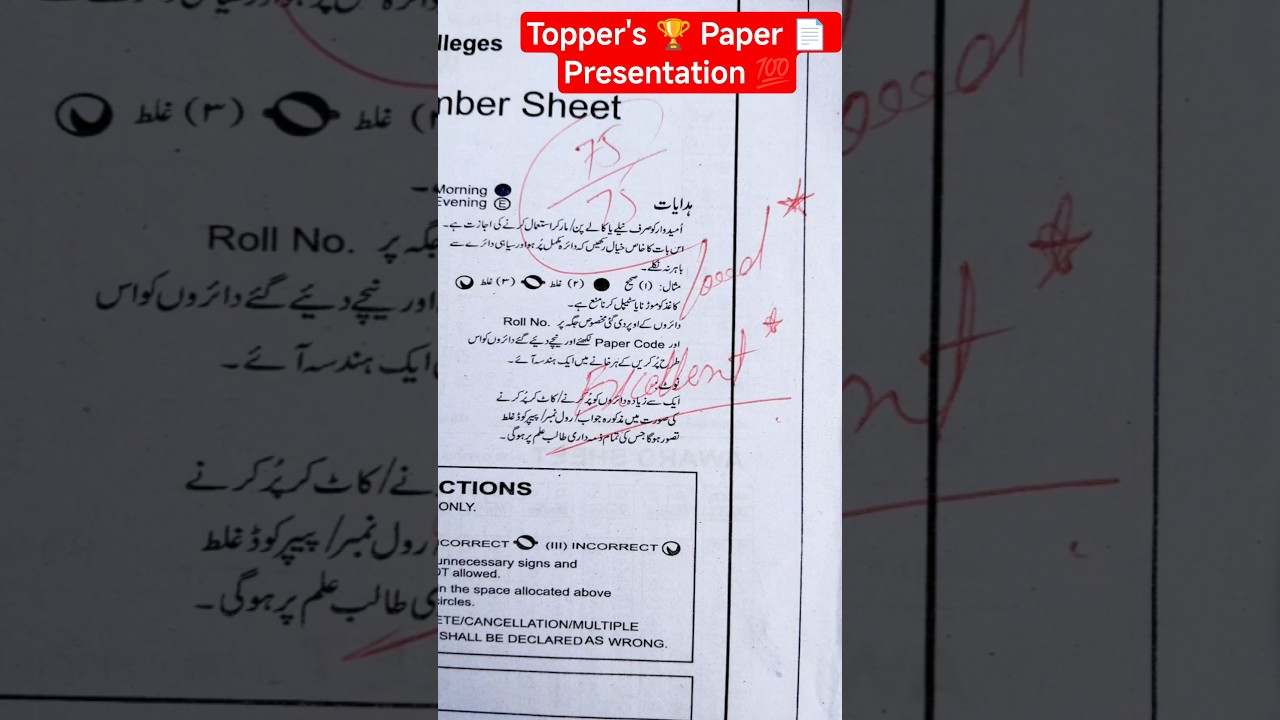 Topper's 🏆 Paper 📄
Presentation 💯
lleges
mber Sheet
75
75
Morning
Evening E
ہدایات
اُمیدوار کو صرف نیلے یا کالے پن/مارکر استعمال کرنے کی اجازت ہے۔
اس بات کا خاص خیال رکھیں کہ دائرہ مکمل پُر ہو اور سیاہی دائرے سے
باہر نہ نکلے۔
مثال: (۱) صحیح (۲) غلط (۳) غلط
کاغذ کو موڑنا یا سٹیپل کرنا منع ہے۔
دائروں کے اوپر دی گئی مخصوص جگہ پر Roll No.
اور Paper Code لکھئے اور نیچے دیئے گئے دائروں کو اس
طرح پُر کریں کے ہر خانے میں ایک ہندسہ آئے۔
نوٹ:
ایک سے زیادہ دائروں کو پُر کرنے/کاٹ کر پُر کرنے
کی صورت میں مذکورہ جواب/رول نمبر/پیپر کوڈ غلط
تصور ہوگا جس کی تمام ذمہ داری طالب علم پر ہوگی۔
Good
Excellent
CTIONS
ONLY.
CORRECT (III) INCORRECT
unnecessary signs and
OT allowed.
in the space allocated above
circles.
ETE/CANCELLATION/MULTIPLE
SHALL BE DECLARED AS WRONG.